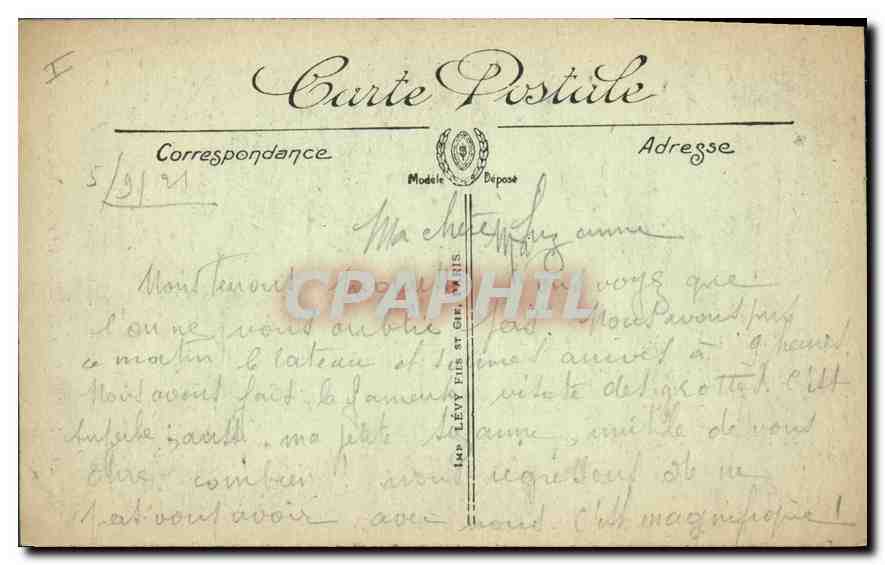 I
Carte Postale
Correspondance
Adresse
Modèle Déposé
5/9/21
Ma chère Suzanne
Nous tenons que vous voyez que
l'on ne vous oublie pas. Nous avons pris
ce matin le bateau et sommes arrivés à 9 heures
Nous avons fait la fameuse visite des grottes. C'est
superbe; aussi, ma petite Suzanne, inutile de vous
dire combien nous regrettons de ne
pas vous avoir avec nous. C'est magnifique!
IMP LÉVY FILS ET CIE. PARIS.
CPAPHIL